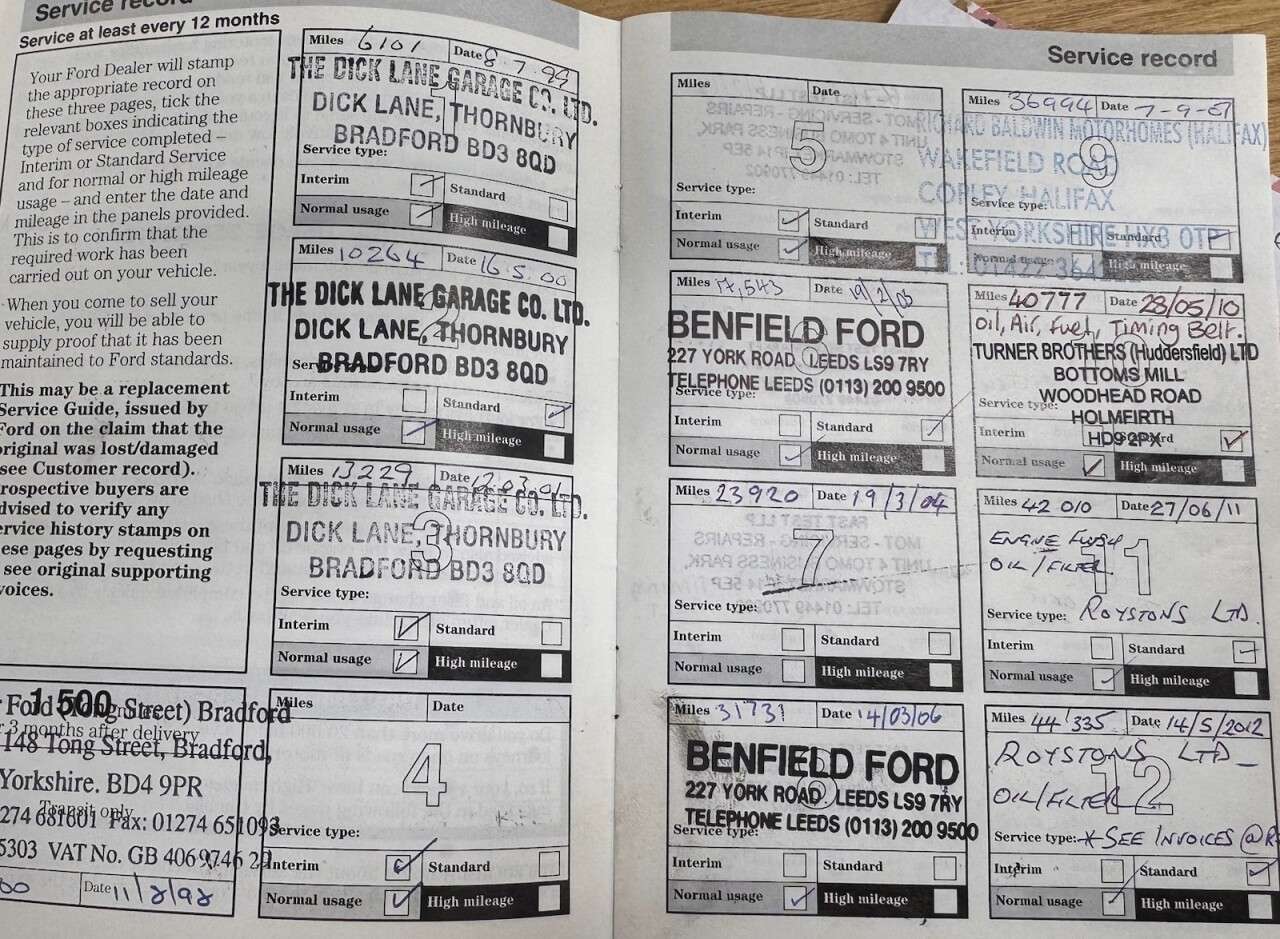 Service record
Service at least every 12 months
Your Ford Dealer will stamp
the appropriate record on
these three pages, tick the
relevant boxes indicating the
type of service completed –
Interim or Standard Service
and for normal or high mileage
usage – and enter the date and
mileage in the panels provided.
This is to confirm that the
required work has been
carried out on your vehicle.
When you come to sell your
vehicle, you will be able to
supply proof that it has been
maintained to Ford standards.
This may be a replacement
Service Guide, issued by
Ford on the claim that the
original was lost/damaged
see Customer record).
rospective buyers are
dvised to verify any
ervice history stamps on
ese pages by requesting
see original supporting
voices.
1 500
Ford (Tong Street) Bradford
3 months after delivery
148 Tong Street, Bradford,
Yorkshire. BD4 9PR
Transit only
274 681601 Fax: 01274 651093
5303 VAT No. GB 406 9746 2
Date 11/8/98
Miles 6101 Date 8.7.99
THE DICK LANE GARAGE CO. LTD.
DICK LANE, THORNBURY
BRADFORD BD3 8QD
1
Service type:
Interim Standard
Normal usage High mileage
Miles 10264 Date 16.5.00
THE DICK LANE GARAGE CO. LTD.
DICK LANE, THORNBURY
BRADFORD BD3 8QD
2
Interim Standard
Normal usage High mileage
Miles 13229 Date 12.03.01
THE DICK LANE GARAGE CO. LTD.
DICK LANE, THORNBURY
BRADFORD BD3 8QD
3
Service type:
Interim Standard
Normal usage High mileage
Miles Date
4
Service type:
Interim Standard
Normal usage High mileage
Service record
Miles Date
5
Service type:
Interim Standard
Normal usage High mileage
Miles 17,543 Date 19/2/03
BENFIELD FORD
227 YORK ROAD LEEDS LS9 7RY
TELEPHONE LEEDS (0113) 200 9500
Service type:
Interim Standard
Normal usage High mileage
Miles 23920 Date 19/3/04
7
Service type:
Interim Standard
Normal usage High mileage
Miles 31731 Date 14/03/06
BENFIELD FORD
227 YORK ROAD LEEDS LS9 7RY
TELEPHONE LEEDS (0113) 200 9500
Service type:
Interim Standard
Normal usage High mileage
Miles 36994 Date 7-9-07
RICHARD BALDWIN MOTORHOMES (HALIFAX)
WAKEFIELD ROAD
9
COPLEY HALIFAX
Service type:
WEST YORKSHIRE HX3 0TP
Interim Standard
TEL: 01422 364
Normal usage High mileage
Miles 40777 Date 28/05/10
Oil, Air, Fuel, Timing Belt.
TURNER BROTHERS (Huddersfield) LTD
BOTTOMS MILL
WOODHEAD ROAD
Service type:
HOLMFIRTH
HD9 2PX
Interim
Normal usage High mileage
Miles 42 010 Date 27/06/11
ENGINE FLUSH
OIL/FILTER
11
Service type: ROYSTONS LTD.
Interim Standard
Normal usage High mileage
Miles 44'335 Date 14/5/2012
ROYSTONS LTD_
OIL/FILTER
12
Service type: *SEE INVOICES @
Interim Standard
Normal usage High mileage